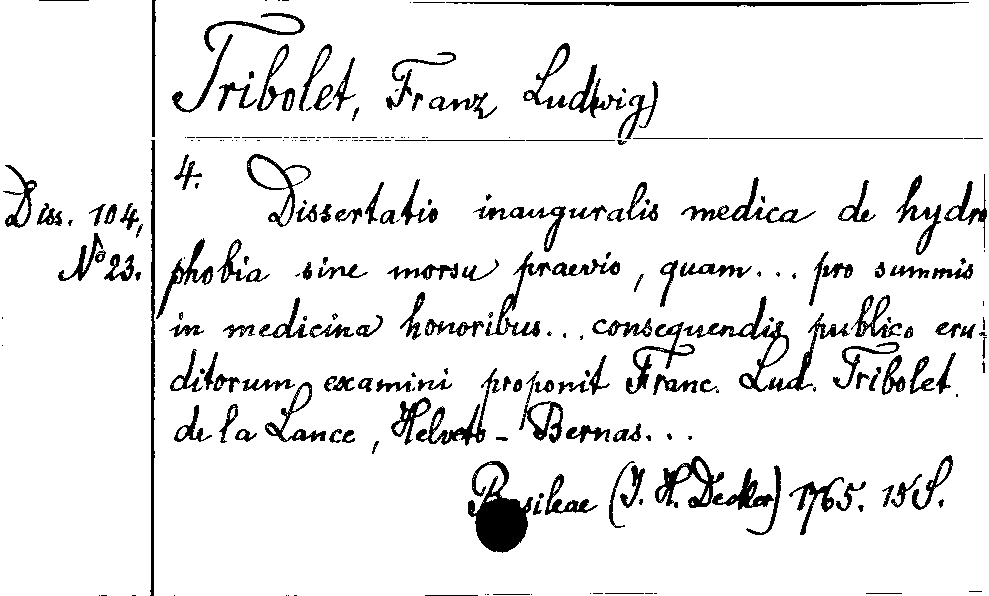 Tribolet, Franz Lud(wig)
4.
Dissertatio inauguralis medica de hydro
Diss. 104,
No 23.
phobia sine morsu praevio, quam... pro summis
in medicina honoribus... consequendis publico eru-
ditorum examini proponit Franc. Lud. Tribolet
de la Lance, Helveto-Bernas...
Basileae (J. H. Decker) 1765. 15 S.